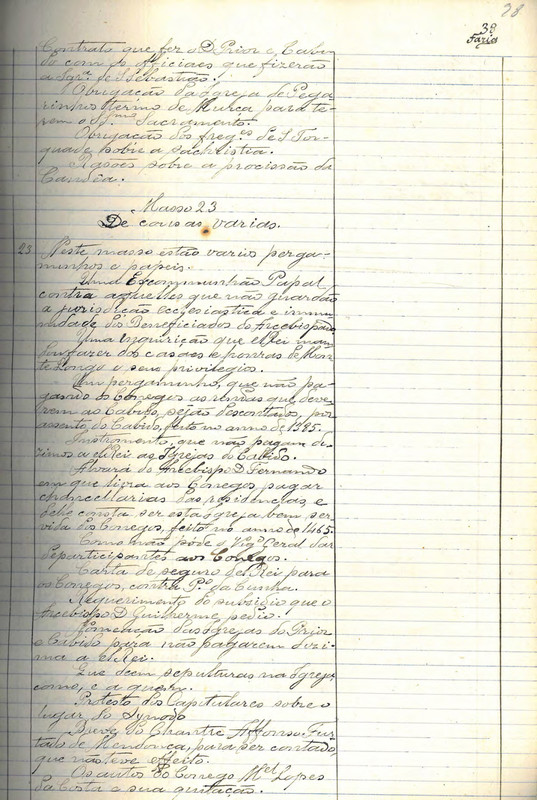 28
39
Faria
Contrato que fez o D. Prior e Cabi-
do com os officiaes que fizerão
a Igr.ª de S. Sebastião.
Obrigação da Igreja de Pega-
rinhos termo de Murça para te-
rem o SS.mo Sacramento.
Obrigação dos freg.es de S. Tor-
quade sobre a sachristia.
Rasões sobre a procissão da
Candêa.
Masso 23
De cousas varias.
23 Neste masso estão varios perga-
minhos e papeis.
Uma Excommunhão Papal
contra aquelles que não guardão
a jurisdição ecclesiastica e immu-
nidade dos Beneficiados do Arcebispado
Uma inquirição que elRei man-
dou fazer dos casaes e honras de Mon-
te Longo e seus privilegios.
Um pergaminho, que não pa-
gando os Conegos as rendas que deve-
rem ao Cabido, sejão descontados, por
assento do Cabido, feito no anno de 1395.
Instrumento, que não pagam di-
zimos a elRei as Igrejas do Cabido.
Alvará do Arcebispo D. Fernando
em que livra aos Conegos pagar
chancellarias das residencias, e
delle consta ser esta Igreja bem ser-
vida dos Conegos, feito no anno de 1465.
Como não póde o Vig.º Geral dar
de participantes aos Conegos.
Carta de seguro de elRei para
os Conegos, contra P.º da Cunha.
Requerimento do subsidio que o
Arcebispo D. Guilherme pedio.
Nomeação das Igrejas do Prior
e Cabido para não pagarem dizi-
ma a elRei.
Que deem sepulturas na Igreja,
como, e a quem.
Protesto dos Capitulares sobre o
lugar do Synodo
Breve do Chantre Affonso Fur-
tado de Mendonça, para ser contado,
que não teve effeito.
Os autos do Conego M.el Lopes
da Costa e sua quitação.